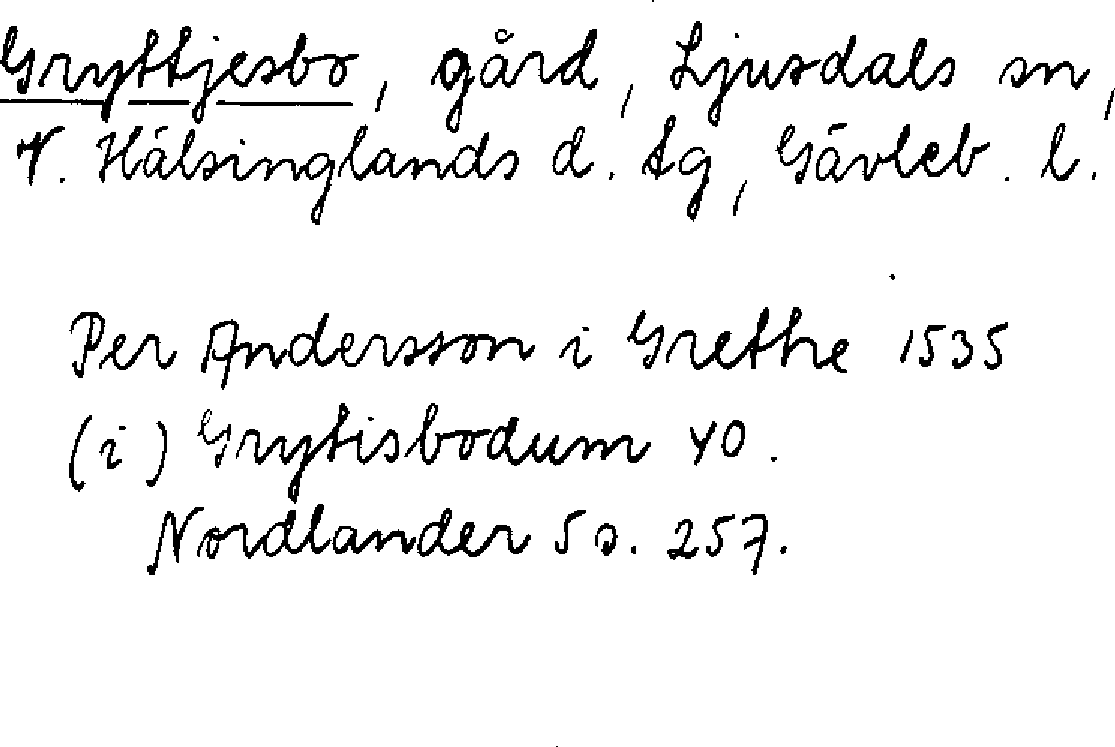 Gryttjesbo, gård, Ljusdals sn,
V. Hälsinglands d. tg, Gävleb. l.
Per Andersson i Grethe 1535
(i) Grytisbodum 40.
Nordlander 5 s. 257.